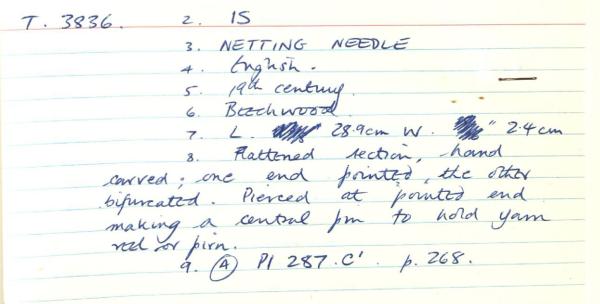 T. 3836. 2. IS
3. NETTING NEEDLE
4. English.
5. 19th century.
6. Beechwood.
7. L. " 28.9cm W. " 2.4cm
8. Flattened section, hand
carved; one end pointed, the other
bifurcated. Pierced at pointed end
making a central pin to hold yarn
reel or pirn.
9. (A) Pl 287.C' p. 268.